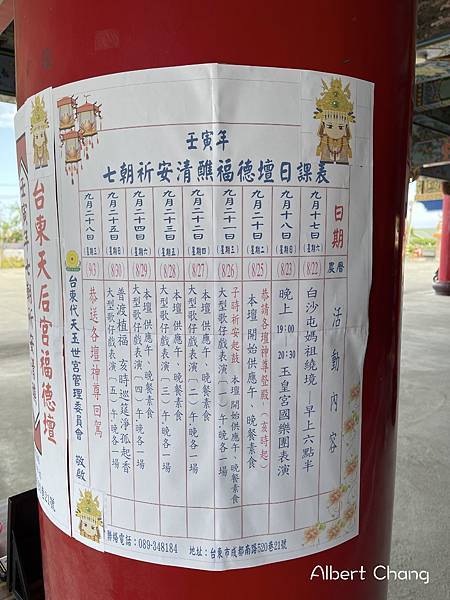 壬寅年
七朝祈安清醮福德壇日課表
日期
農曆
活動內容
九月十七日
(星期六)
(8/22)
白沙屯媽祖繞境—早上六點半
九月十八日
(星期日)
(8/23)
晚上 19:00 20:30 玉皇宮國樂團表演
九月二十日
(星期二)
(8/25)
恭請各壇神尊登殿。(亥時起)
本壇開始供應午、晚餐素食
九月二十一日
(星期三)
(8/26)
子時祈安起鼓 本壇開始供應午、晚餐素食
大型歌仔戲表演(一)午、晚各一場
九月二十二日
(星期四)
(8/27)
本壇供應午、晚餐素食
大型歌仔戲表演(二)午、晚各一場
九月二十三日
(星期五)
(8/28)
本壇供應午、晚餐素食
大型歌仔戲表演(三)午、晚各一場
九月二十四日
(星期六)
(8/29)
本壇供應午、晚餐素食
大型歌仔戲表演(四)午、晚各一場
九月二十五日
(星期日)
(8/30)
普渡植福 亥時巡筵淨孤起香
大型歌仔戲表演(五)午、晚各一場
九月二十八日
(星期三)
(9/3)
恭送各壇神尊回駕
台東代天玉世宮管理委員會 敬啟
聯絡電話:089-348184 地址:台東市成都南路520巷21號
台東天后宮福德壇
壬寅
Albert Chang